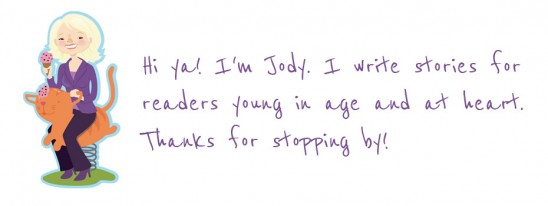 Hi ya! I'm Jody. I write stories for
readers young in age and at heart.
Thanks for stopping by!